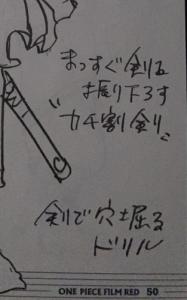 まっすぐ剣を
振り下ろす
"カチ割剣り"
剣で穴掘る
ドリル
ONE PIECE FILM RED 50